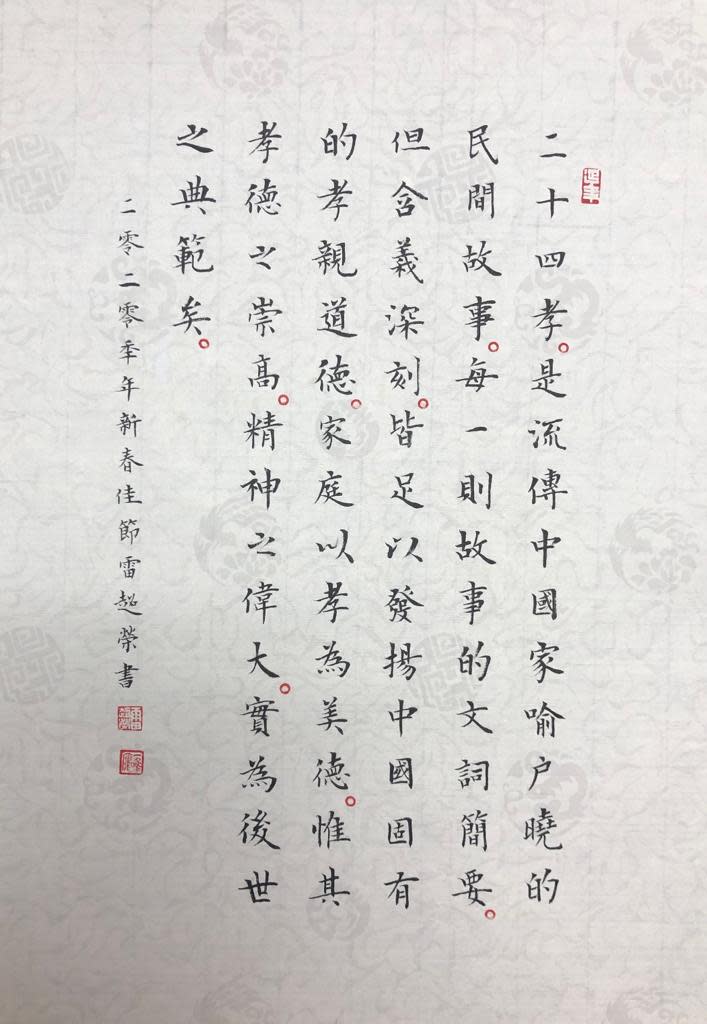 二十四孝。是流傳中國家喻户曉的
民間故事。每一則故事的文詞簡要。
但含義深刻。皆足以發揚中國固有
的孝親道德。家庭以孝為美德。惟其
孝德之崇高。精神之偉大。實為後世
之典範矣。
二零二零季年新春佳節雷超榮書